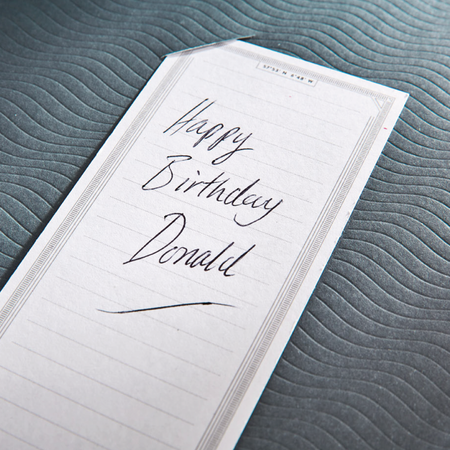 Happy
Birthday
Donald